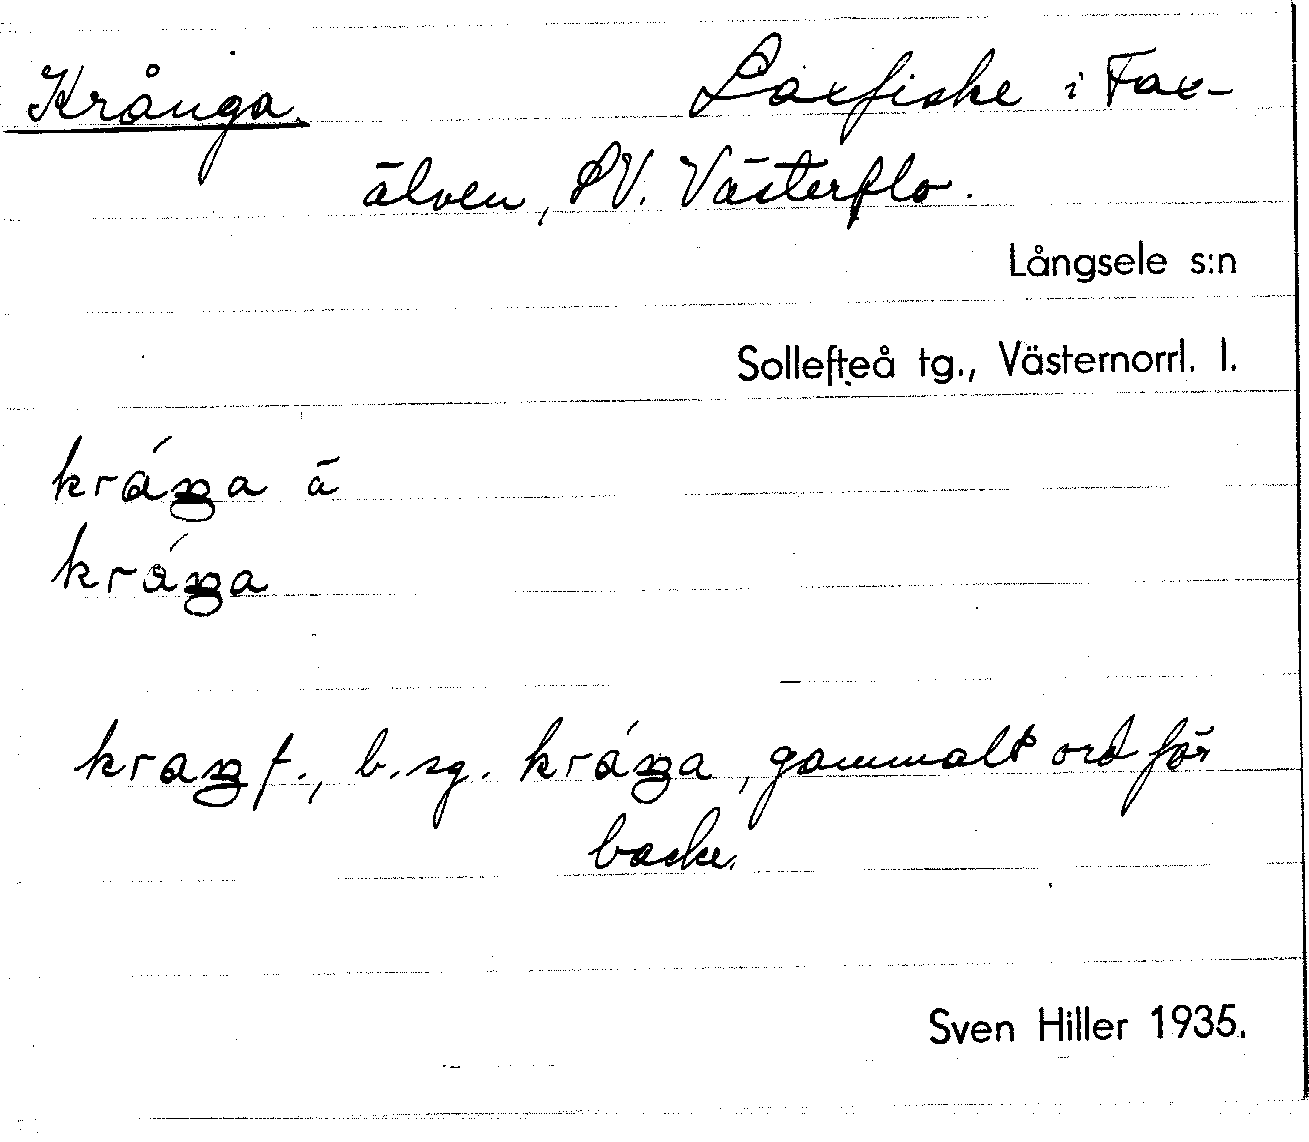 Krånga. Laxfiske i Fax-
älven, SV. Västerflo.
Långsele s:n
Sollefteå tg., Västernorrl. l.
kráŋa ä
kráŋa
kraŋ f., b.sg. kráŋa, gammalt ord för
backe.
Sven Hiller 1935.